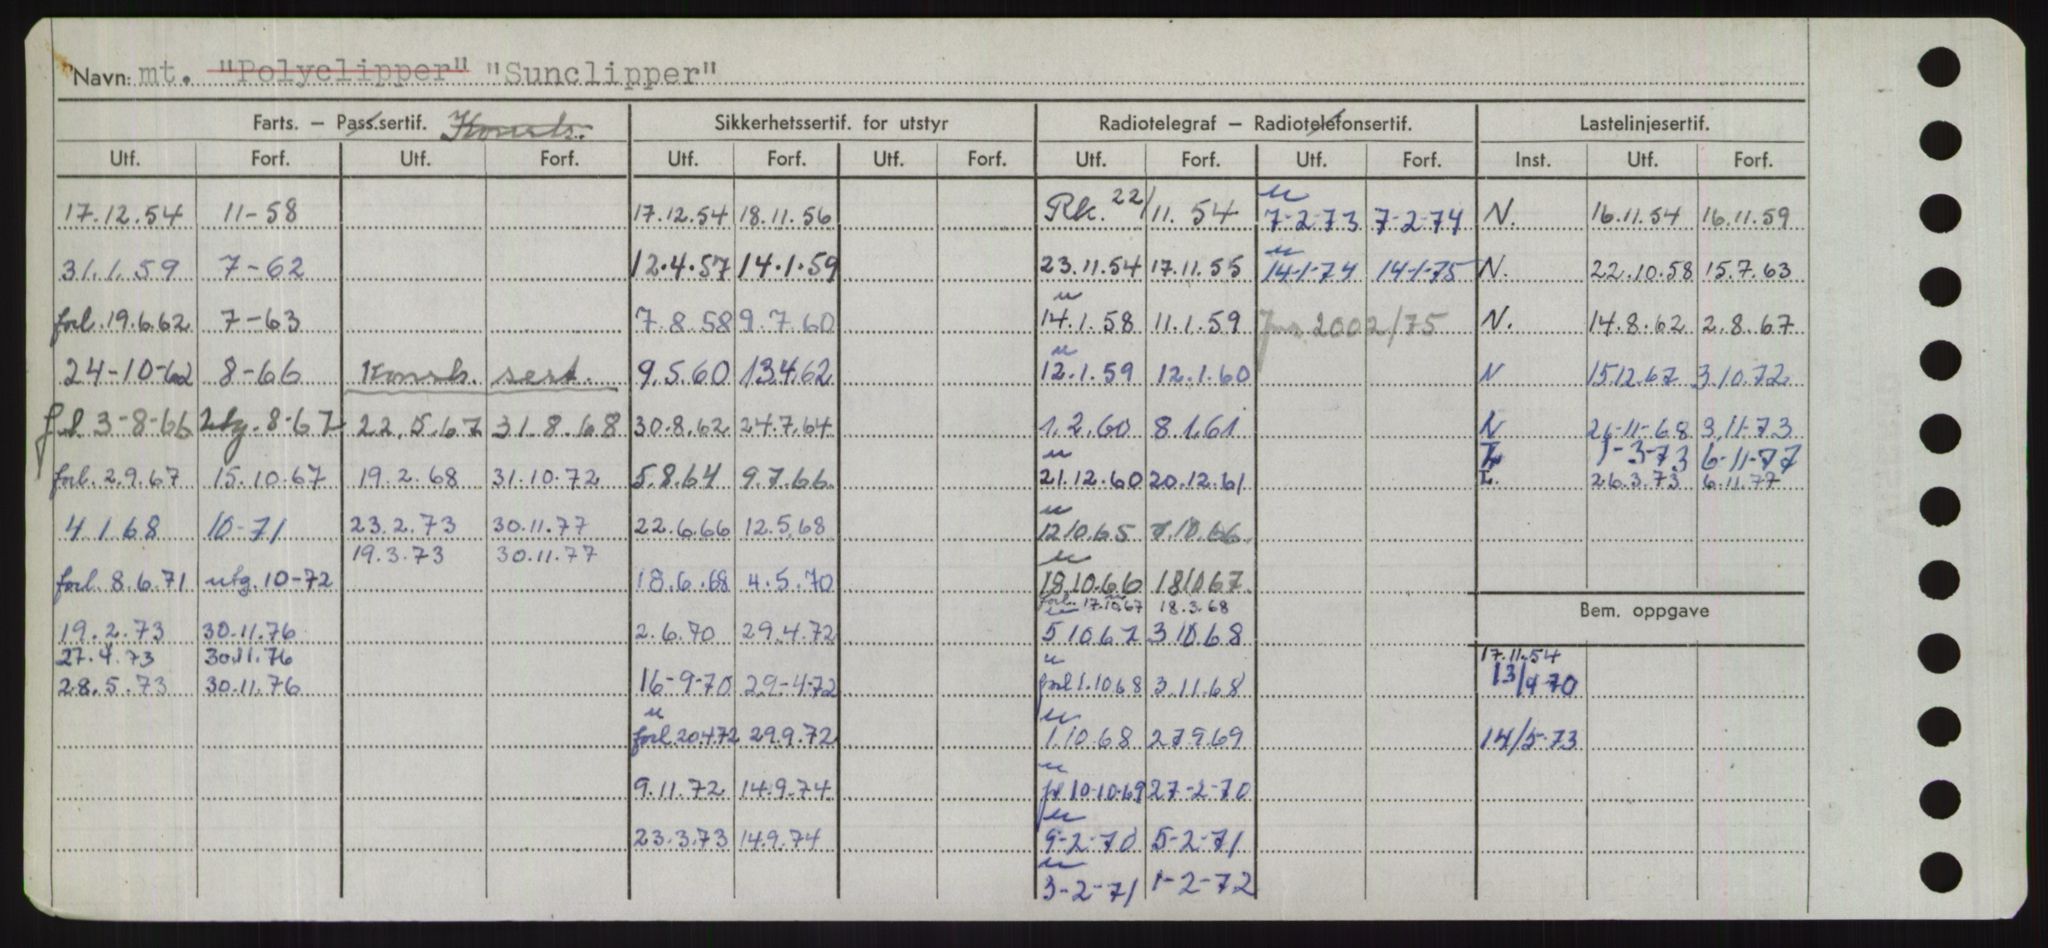 Navn: mt. "Polyclipper" "Sunclipper"
Farts. – Pass.sertif. Konstr. Sikkerhetssertif. for utstyr Radiotelegraf – Radiotelefonsertif. Lastelinjesertif.
Utf. Forf. Utf. Forf. Utf. Forf. Utf. Forf. Utf. Forf. Utf. Forf. Inst. Utf. Forf.
17.12.54 11-58 17.12.54 18.11.56 Rk. 22/11. 54 u 7-2-73 7-2-74 N. 16.11.54 16.11.59
31.1.59 7-62 12.4.57 14.1.59 23.11.54 17.11.55 u 14-1-74 14-1-75 N. 22.10.58 15.7.63
forl. 19.6.62 7-63 7.8.58 9.7.60 u 14.1.58 11.1.59 2002/75 N. 14.8.62 2.8.67
24-10-62 8-66 Konstr. sert. 9.5.60 13.4.62 u 12.1.59 12.1.60 N 15.12.67 3.10.72
fl. 3-8-66 utg. 8-67 22.5.67 31.8.68 30.8.62 24.7.64 1.2.60 8.1.61 N 26-11-68 3.11-73
I 1-3-73 6-11-77
forl. 2.9.67 15.10.67 19.2.68 31.10.72 5.8.64 9.7.66 u 21.12.60 20.12.61 I. 26.3.73 6.11.77
4.1.68 10-71 23.2.73 30.11.77 22.6.66 12.5.68 u 12.10.65 7.10.66
19.3.73 30.11.77
forl. 8.6.71 utg. 10-72 18.6.68 4.5.70 u 18.10.66 18.10.67
forl. 17.10.67 18.3.68 Bem. oppgave
19.2.73 30.11.76 2.6.70 29.4.72 u 5.10.67 3.10.68
27.4.73 30.11.76 17.11.54
28.5.73 30.11.76 16-9-70 29-4-72 u forl 1.10.68 3.11.68 13/4 70
u forl. 20.4.72 29.9.72 u 1.10.68 27.9.69 14/5-73
9.11.72 14.9.74 u fl 10-10-69 27-2-70
23.3.73 14.9.74 u 9-2-70 5-2-71
u 3-2-71 1-2-72